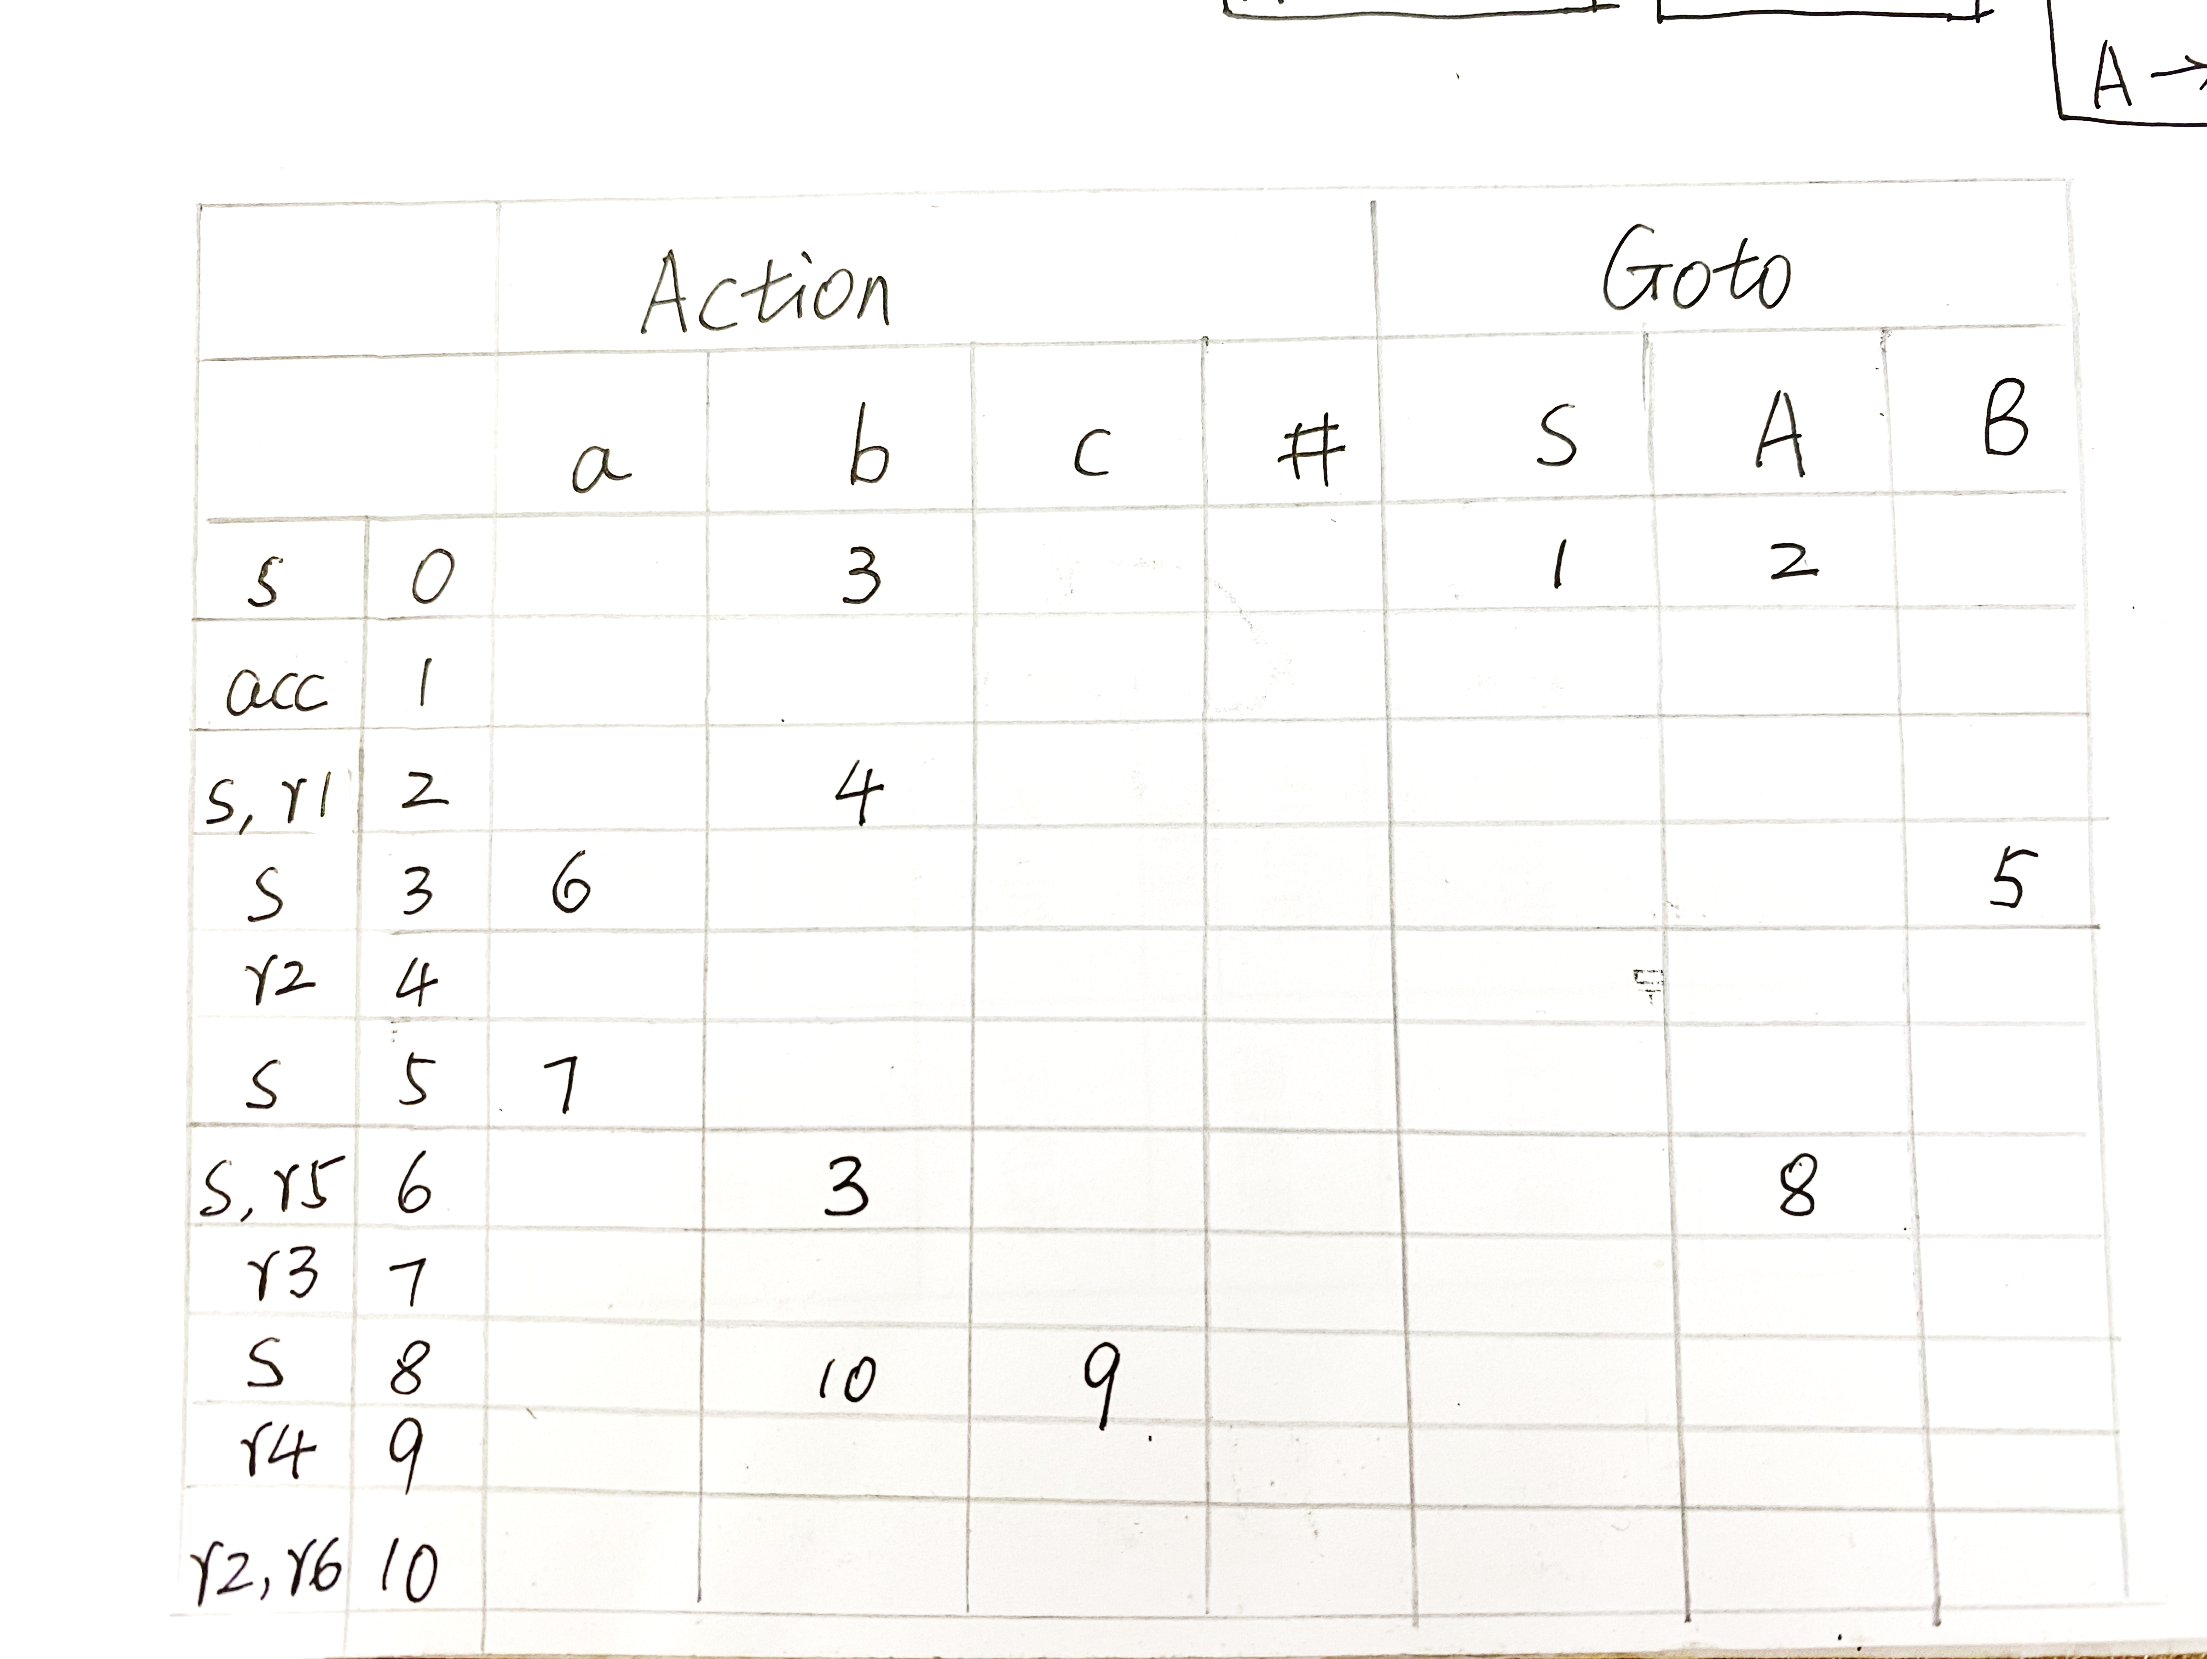 A →
Action Goto
a b c # S A B
s 0 3 1 2
acc 1
s, r1 2 4
s 3 6 5
r2 4
s 5 7
s, r5 6 3 8
r3 7
s 8 10 9
r4 9
r2, r6 10